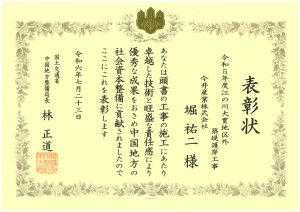 表彰状
令和5年度江の川大貫地区外
築堤護岸工事
今井産業株式会社
堀 祐二 様
あなたは頭書の工事の施工にあたり
卓越した技術と旺盛な責任感により
優秀な成果をおさめ中国地方の
社会資本整備に貢献されましたので
ここにこれを表彰します
令和六年七月二十三日
国土交通省
中国地方整備局長
林 正道